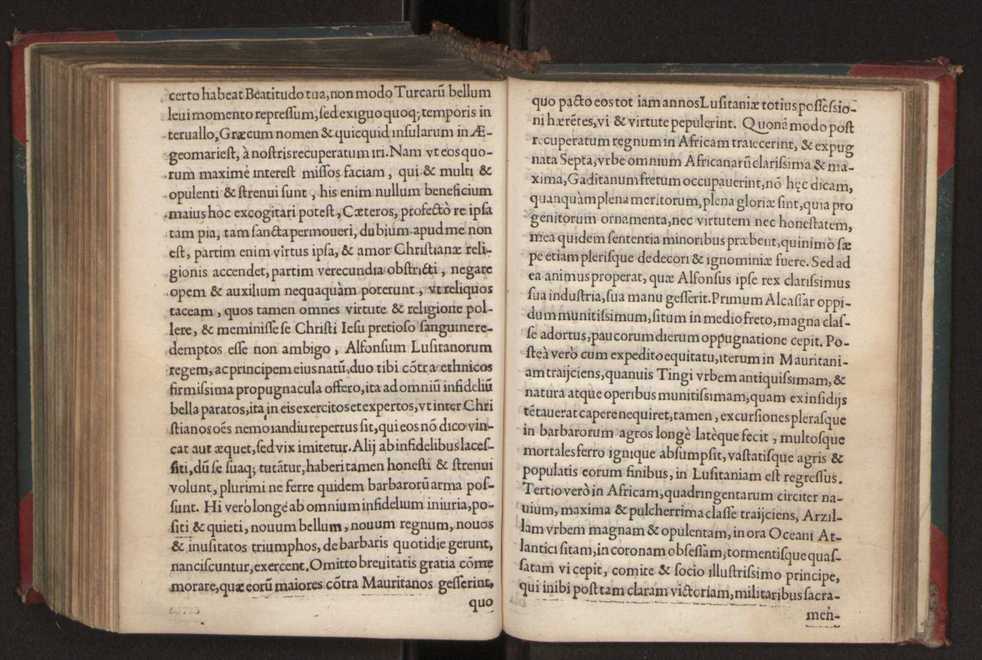 certo habeat Beatitudo tua, non modo Turcarũ bellum
leui momento repressum, sed exiguo quoq; temporis in
teruallo, Græcum nomen & quicquid insularum in Æ-
geo mari est, à nostris recuperatum iri. Nam vt eos quo-
rum maximè interest missos faciam, qui & multi &
opulenti & strenui sunt, his enim nullum beneficium
maius hoc excogitari potest, Cæteros, profectò re ipsa
tam pia, tam sancta permoueri, dubium apud me non
est, partim enim virtus ipsa, & amor Christianæ reli-
gionis accendet, partim verecundia obstricti, negare
opem & auxilium nequaquàm poterunt, vt reliquos
taceam, quos tamen omnes virtute & religione pol-
lere, & meminisse se Christi Iesu pretioso sanguine re-
demptos esse non ambigo, Alfonsum Lusitanorum
regem, ac principem eius natũ, duo tibi cõtra ethnicos
firmissima propugnacula offero, ita ad omniũ infideliũ
bella paratos, ita in eis exercitos et expertos, vt inter Chri
stianos oẽs nemo iandiu repertus sit, qui eos nõ dico vin-
cat aut æquet, sed vix imitetur. Alij ab infidelibus laces-
siti, dũ se suaq; tutãtur, haberi tamen honesti & strenui
volunt, plurimi ne ferre quidem barbarorũ arma pos-
sunt. Hi verò longè ab omnium infidelium iniuria, po-
siti & quieti, nouum bellum, nouum regnum, nouos
& inusitatos triumphos, de barbaris quotidie gerunt,
nanciscuntur, exercent. Omitto breuitatis gratia cõme
morare, quæ eorũ maiores cõtra Mauritanos gesserint,
quo
quo pacto eos tot iam annos Lusitaniæ totius possessio-
ni hærẽtes, vi & virtute pepulerint. Quonã modo post
recuperatum regnum in Africam traiecerint, & expug
nata Septa, vrbe omnium Africanarũ clarissima & ma-
xima, Gaditanum fretum occupauerint, nõ hęc dicam,
quanquàm plena meritorum, plena gloriæ sint, quia pro
genitorum ornamenta, nec virtutem nec honestatem,
mea quidem sententia minoribus præbent, quinimò sæ
pe etiam plerisque dedecori & ignominiæ fuere. Sed ad
ea animus properat, quæ Alfonsus ipse rex clarissimus
sua industria, sua manu gesserit. Primum Alcassar oppi-
dum munitissimum, situm in medio freto, magna clas-
se adortus, paucorum dierum oppugnatione cepit. Po-
steà verò cum expedito equitatu, iterum in Mauritani-
am traijciens, quanuis Tingi vrbem antiquissimam, &
natura atque operibus munitissimam, quam ex insidijs
tẽtauerat capere nequiret, tamen, excursiones plerasque
in barbarorum agros longè latèque fecit, multosque
mortales ferro ignique absumpsit, vastatisque agris &
populatis eorum finibus, in Lusitaniam est regressus.
Tertio verò in Africam, quadringentarum circiter na-
uium, maxima & pulcherrima classe traijciens, Arzil-
lam vrbem magnam & opulentam, in ora Oceani At-
lantici sitam, in coronam obsessam, tormentisque quas-
satam vi cepit, comite & socio illustrissimo principe,
qui inibi post tam claram victoriam, militaribus sacra-
men-